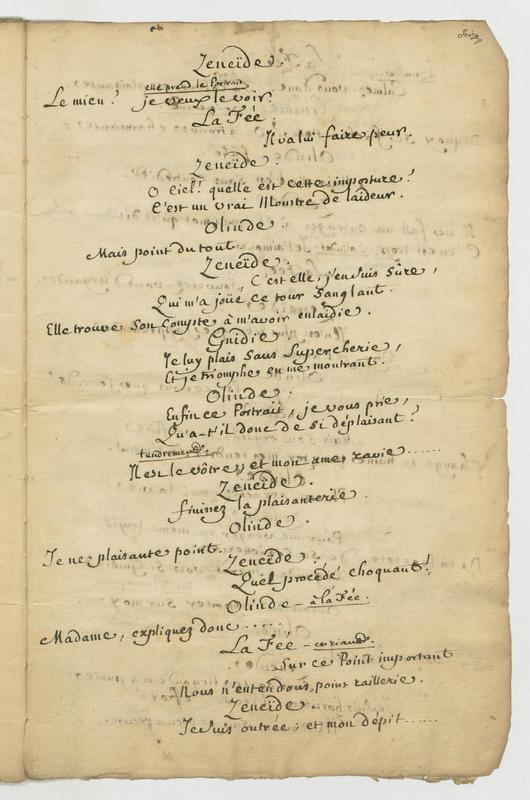 Zeneïde.
elle prend le Portrait
Le mien? je veux le voir.
La Fée.
Il va lui faire peur.
Zeneïde.
O Ciel! quelle est cette imposture!
C'est un vrai Monstre de laideur.
Olinde.
Mais point du tout.
Zeneïde.
C'est elle, j'en suis sûre,
Qui m'a joüé ce tour sanglant.
Elle trouve son compte à m'avoir enlaidie.
Gnidie.
Je luy plais sans supercherie,
Et je triomphe en me montrant.
Olinde.
Enfin ce Portrait, je vous prie,
Qu'a-t'il donc de si déplaisant?
tendrement.
Il est le vôtre, et mon ame ravie......
Zeneïde.
finissez la plaisanterie.
Olinde.
Je ne plaisante point.
Zeneïde.
Quel procédé choquant!
Olinde - à la Fée.
Madame, expliquez donc......
La Fée - en riant.
Sur ce Point important
Nous n'entendons point raillerie.
Zeneïde.
Je suis outrée; et mon dépit......